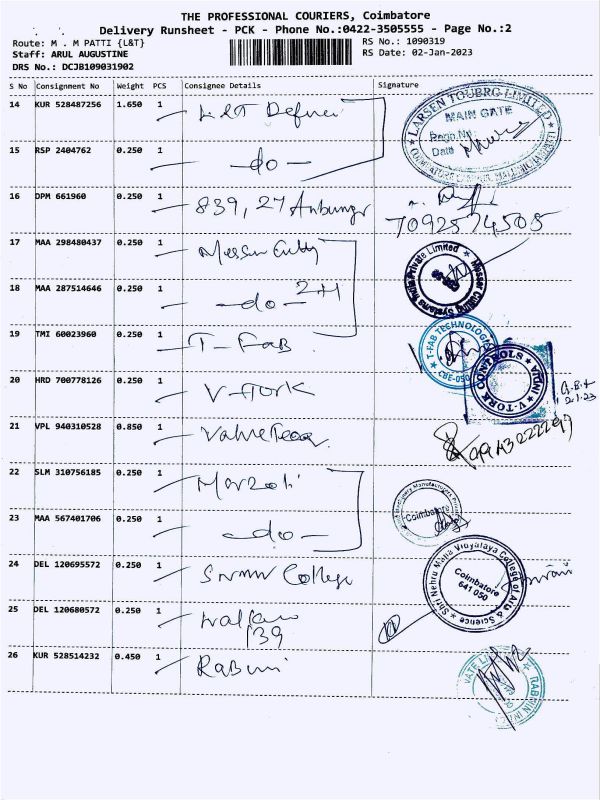 THE PROFESSIONAL COURIERS, Coimbatore
Delivery Runsheet - PCK - Phone No.:0422-3505555 - Page No.:2
Route: M . M PATTI {L&T}
RS No.: 1090319
Staff: ARUL AUGUSTINE
RS Date: 02-Jan-2023
DRS No.: DCJB109031902
S No Consignment No Weight PCS Consignee Details Signature
14 KUR 528487256 1.650 1 L&T
LARSEN TOUBRO LIMITED
MAIN GATE
Date
15 RSP 2404762 0.250 1 -do-
16 DPM 661960 0.250 1 839, 27
7092574505
17 MAA 298480437 0.250 1 Messer
Messer Cutting Systems India Private Limited
18 MAA 287514646 0.250 1 -do-
19 TMI 60023960 0.250 1 T-FAB
T-FAB TECHNOLOGI
CBE-050
20 HRD 700778126 0.250 1 V-TORK
V-TORK CONTROLS
INDIA
2.1.23
21 VPL 940310528 0.850 1
22 SLM 310756185 0.250 1
Coimbatore
23 MAA 567401706 0.250 1 -do-
24 DEL 120695572 0.250 1 SNMV College
Shri Nehru Maha Vidyalaya College of Arts & Science
Coimbatore
641 050
25 DEL 120680572 0.250 1
139
26 KUR 528514232 0.450 1
VATE LIM